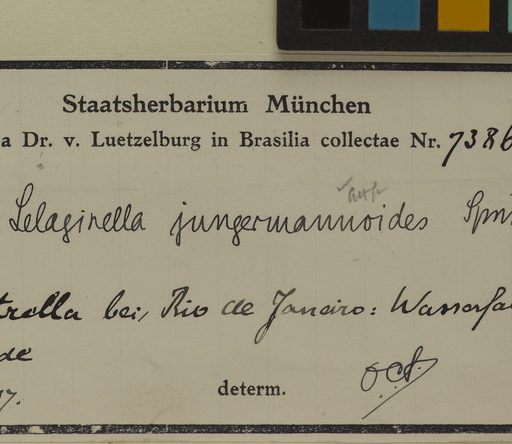 Staatsherbarium München
a Dr. v. Luetzelburg in Brasilia collectae Nr. 7386
Selaginella jungermannioides Spri
trella bei Rio de Janeiro: Wasserfa
de
17. determ.